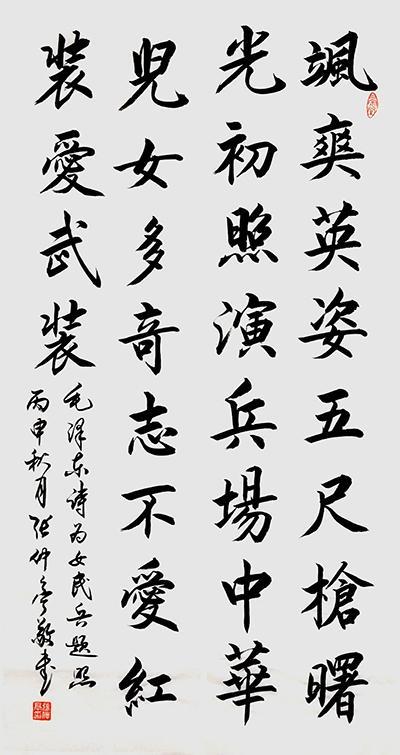 颯爽英姿五尺槍曙
光初照演兵場中華
兒女多奇志不愛紅
裝愛武裝
毛澤东詩为女民兵題照
丙申秋月張仲亭敬书